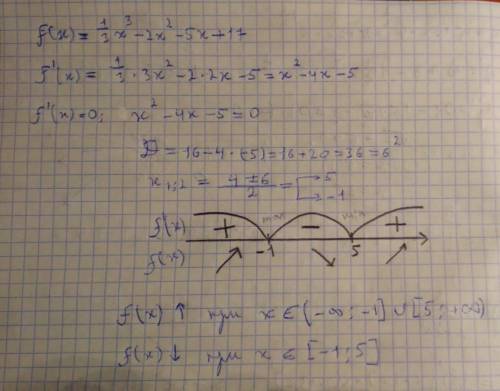 f(x) = 1/3 x³ - 2x² - 5x + 17
f'(x) = 1/3 · 3x² - 2 · 2x - 5 = x² - 4x - 5
f'(x) = 0; x² - 4x - 5 = 0
D = 16 - 4 · (-5) = 16 + 20 = 36 = 6²
x₁,₂ = (4 ± 6)/2 = → 5 → -1
f'(x) + max - min +
f(x) ↗ -1 ↘ 5 ↗
f(x) ↑ при x ∈ (-∞; -1] ∪ [5; +∞)
f(x) ↓ при x ∈ [-1; 5]